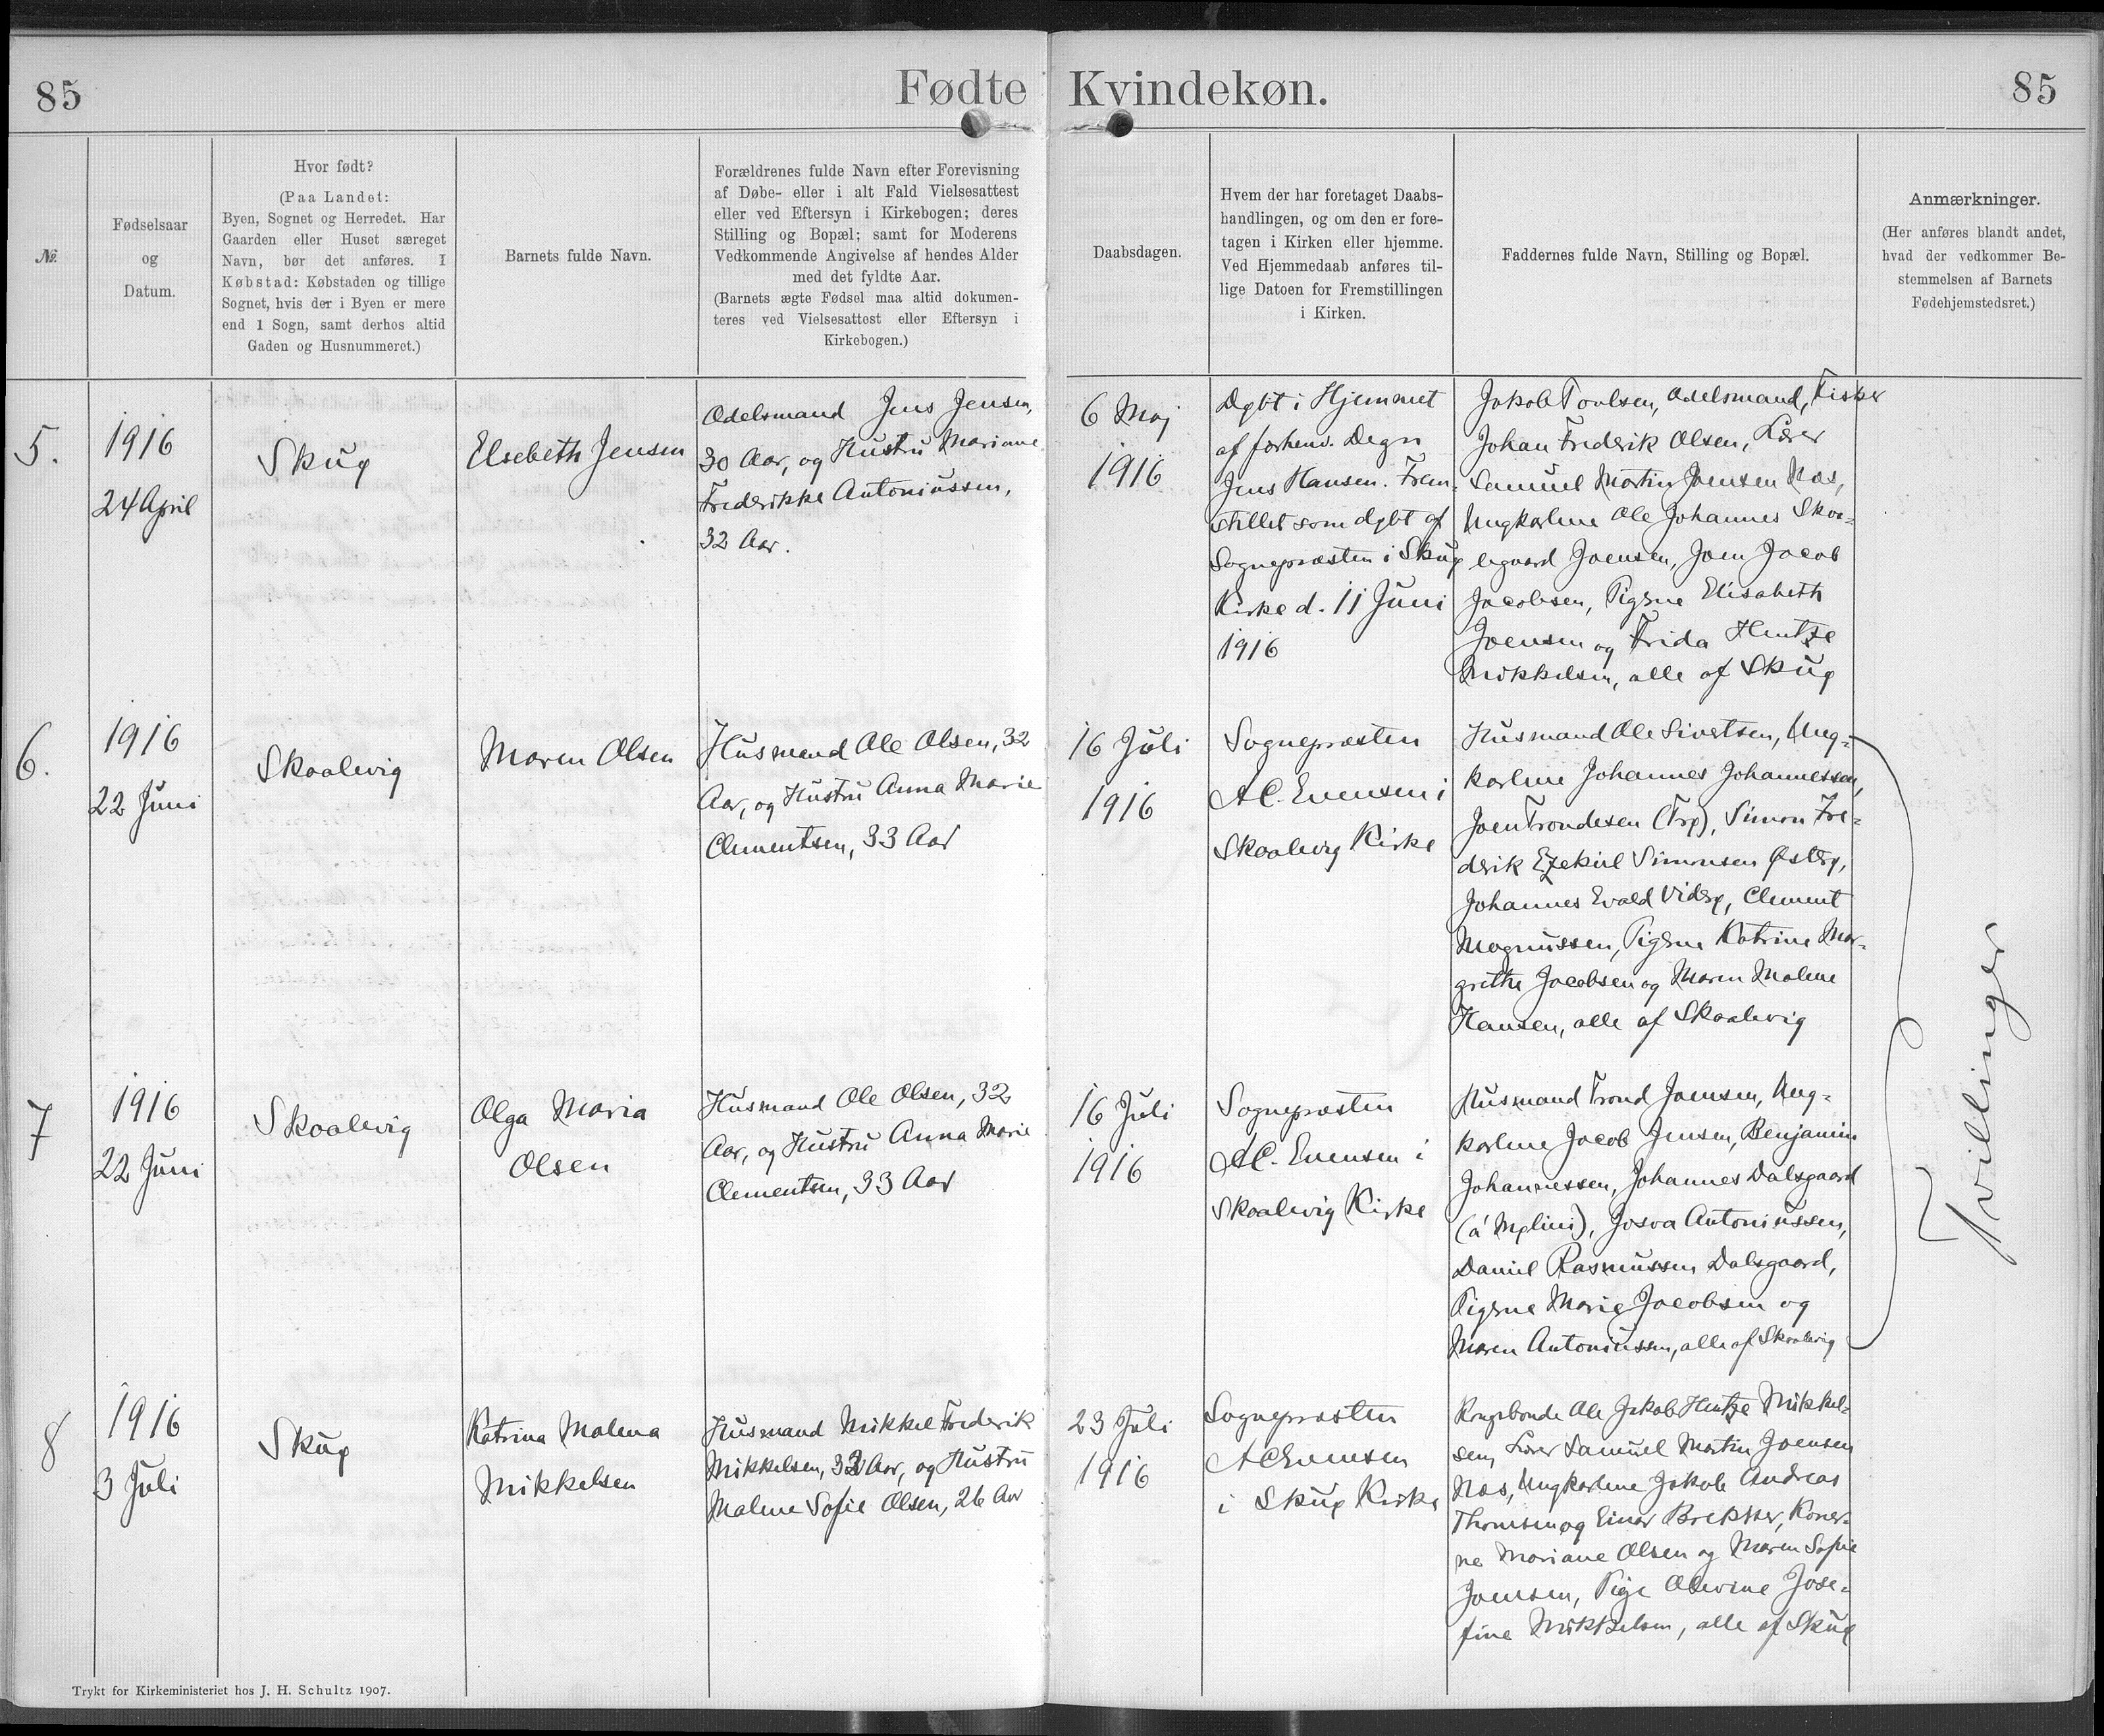 85
Fødte
Kvindekøn.
85
№
Fødselsaar
og
Datum.
Hvor født?
(Paa Landet:
Byen, Sognet og Herredet. Har
Gaarden eller Huset særeget
Navn, bør det anføres. I
Købstad: Købstaden og tillige
Sognet, hvis der i Byen er mere
end 1 Sogn, samt derhos altid
Gaden og Husnummeret.)
Barnets fulde Navn.
Forældrenes fulde Navn efter Forevisning
af Døbe- eller i alt Fald Vielsesattest
eller ved Eftersyn i Kirkebogen; deres
Stilling og Bopæl; samt for Moderens
Vedkommende Angivelse af hendes Alder
med det fyldte Aar.
(Barnets ægte Fødsel maa altid dokumen-
teres ved Vielsesattest eller Eftersyn i
Kirkebogen.)
Daabsdagen.
Hvem der har foretaget Daabs-
handlingen, og om den er fore-
tagen i Kirken eller hjemme.
Ved Hjemmedaab anføres til-
lige Datoen for Fremstillingen
i Kirken.
Faddernes fulde Navn, Stilling og Bopæl.
Anmærkninger.
(Her anføres blandt andet,
hvad der vedkommer Be-
stemmelsen af Barnets
Fødehjemstedsret.)
5.
1916
24 April
Skuø
Elsebeth Jensen
Odelsmand Jens Jensen,
30 Aar, og Hustru Mariane
Frederikke Antoniussen,
32 Aar.
6 Maj
1916
Døbt i Hjemmet
af forhenv. Degn
Jens Hansen. Frem-
stillet som døbt af
Sognepræsten i Skuø
Kirke d. 11 Juni
1916
Jakob Poulsen, Odelsmand, Fisker
Johan Frederik Olsen, Lærer
Samuel Martin Joensen Næs,
Ungkarlene Ole Johannes Skaa-
legaard Joensen, Joen Jacob
Jacobsen, Pigerne Elisabeth
Joensen og Frida Hentze
Mikkelsen, alle af Skuø
6.
1916
22 Juni
Skaalevig
Maren Olsen
Husmand Ole Olsen, 32
Aar, og Hustru Anna Marie
Clementsen, 33 Aar
16 Juli
1916
Sognepræsten
A.C. Evensen i
Skaalevig Kirke
Husmand Ole Sivertsen, Ung-
karlene Johannes Johannessen,
Joen Trondesen (Trø), Simon Fre-
derik Ezekiel Simonsen Østerø,
Johannes Evald Viderø, Clement
Magnussen, Pigerne Katrine Mar-
grethe Jacobsen og Maren Malene
Hansen, alle af Skaalevig
7
1916
22 Juni
Skaalevig
Olga Maria
Olsen
Husmand Ole Olsen, 32
Aar, og Hustru Anna Marie
Clementsen, 33 Aar
16 Juli
1916
Sognepræsten
A.C. Evensen i
Skaalevig Kirke
Husmand Trond Joensen, Ung-
karlene Jacob Jensen, Benjamin
Johannessen, Johannes Dalsgaard
(á Mølini), Josva Antoniussen,
Daniel Rasmussen Dalsgaard,
Pigerne Marie Jacobsen og
Maren Antoniussen, alle af Skaalevig
Tvillinger
8
1916
3 Juli
Skuø
Katrina Malena
Mikkelsen
Husmand Mikkel Frederik
Mikkelsen, 32 Aar, og Hustru
Malene Sofie Olsen, 26 Aar
23 Juli
1916
Sognepræsten
A.C. Evensen
i Skuø Kirke
Kongsbonde Ole Jakob Hentze Mikkel-
sen, Lærer Samuel Martin Joensen
Næs, Ungkarlene Jakob Andreas
Thomsen og Einar Konær-
ne Mariane Olsen og Maren Sofie
Joensen, Pige Olevine Jose-
fine Mikkelsen, alle af Skuø
Trykt for Kirkeministeriet hos J. H. Schultz 1907.